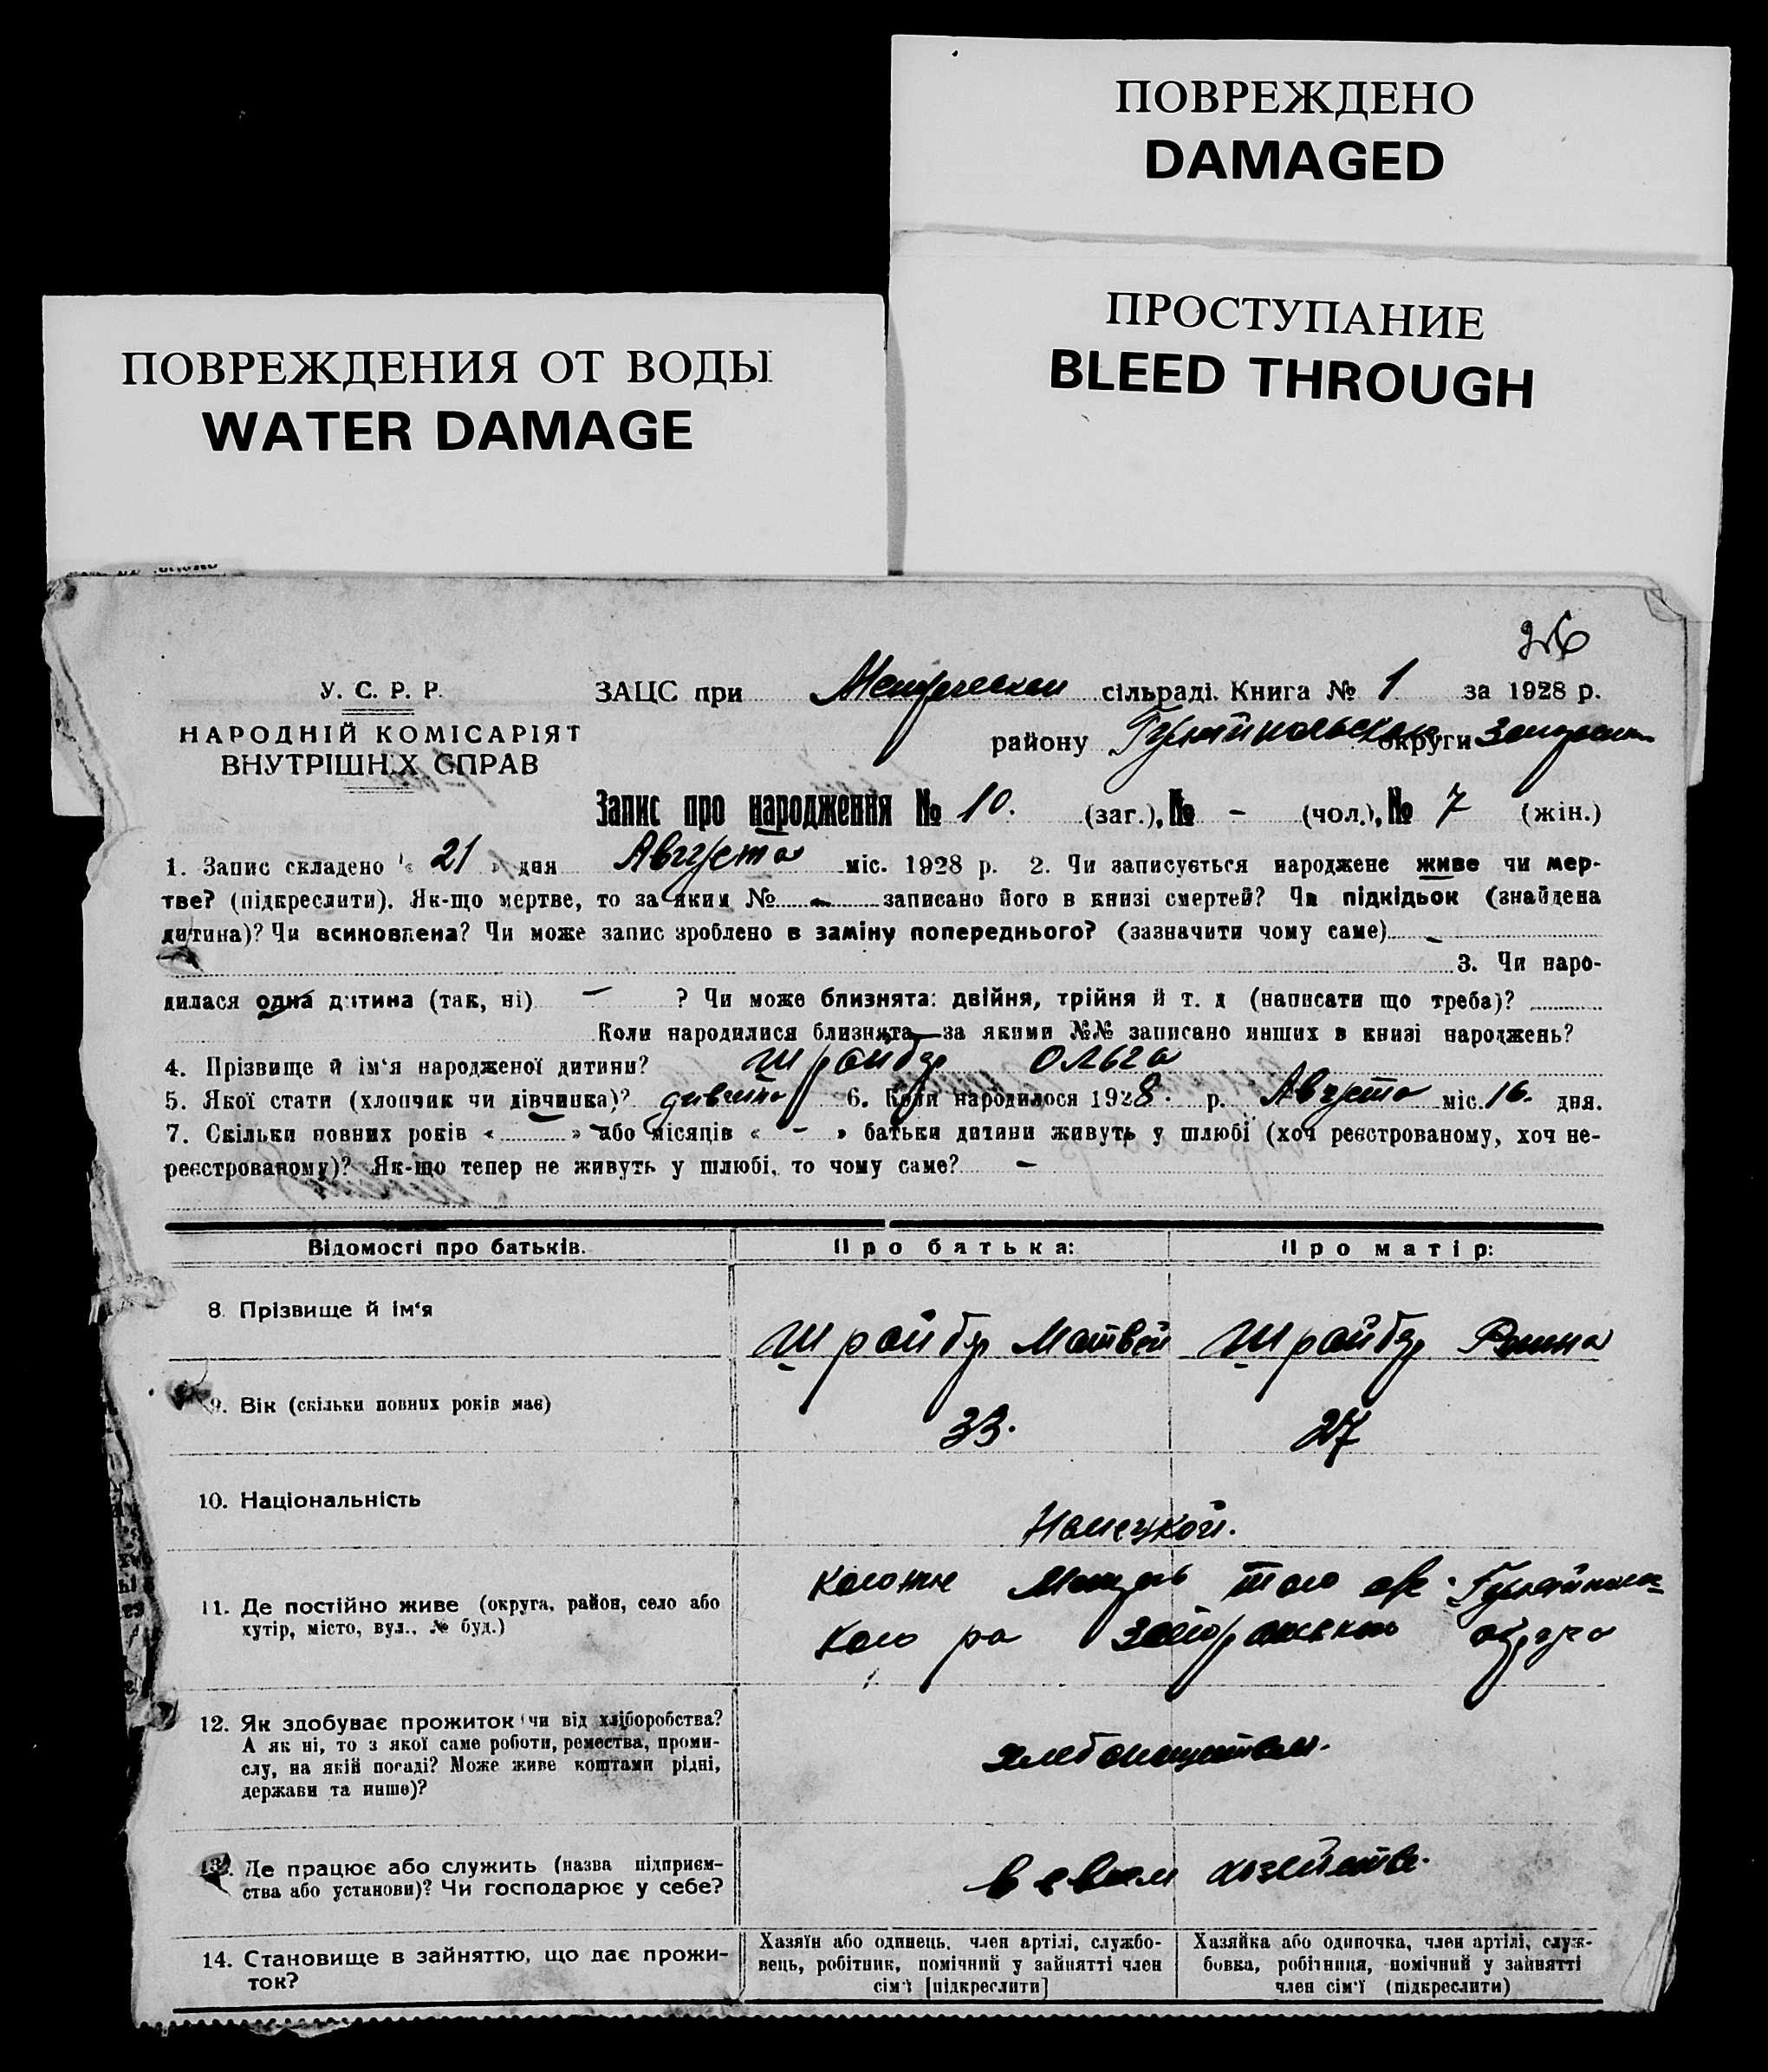 ПОВРЕЖДЕНО
DAMAGED
ПРОСТУПАНИЕ
BLEED THROUGH
ПОВРЕЖДЕНИЯ ОТ ВОДЫ
WATER DAMAGE
26
У. С. Р. Р.
НАРОДНІЙ КОМІСАРІЯТ
ВНУТРІШНІХ СПРАВ
ЗАЦС при сільраді. Книга № 1 за 1928 р.
району округи
Запис про народження № 10. (заг.), № - (чол.), № 7 (жін.)
1. Запис складено « 21 » дня Августа міс. 1928 р. 2. Чи записується народжене живе чи мер-
тве? (підкреслити). Як-що мертве, то за яким № - записано його в книзі смертей? Чи підкідьок (знайдена
дитина)? Чи всиновлена? Чи може запис зроблено в заміну попереднього? (зазначити чому саме) -
3. Чи наро-
дилася одна дитина (так, ні) - ? Чи може близнята: двійня, трійня й т. д (написати що треба)?
Коли народилися близнята—за якими №№ записано инших в книзі народжень?
4. Прізвище й ім'я народженої дитини? Шрайбер Ольга
5. Якої стати (хлопчик чи дівчинка)? 6. Коли народилося 1928. р. Августа міс. 16. дня.
7. Скільки повних років « - » або місяців « - » батьки дитини живуть у шлюбі (хоч реєстрованому, хоч не-
реєстрованому)? Як-що тепер не живуть у шлюбі, то чому саме? -
Відомості про батьків. Про батька: Про матір:
8. Прізвище й ім'я Шрайбер Матвей Шрайбер
9. Вік (скільки повних років має) 33. 27
10. Національність Немецкой.
11. Де постійно живе (округа, район, село або
хутір, місто, вул., № буд.)
12. Як здобуває прожиток чи від хліборобства?
А як ні, то з якої саме роботи, ремества, проми-
слу, на якій посаді? Може живе коштами рідні,
держави та инше)?
13. Де працює або служить (назва підприєм-
ства або установи)? Чи господарює у себе? в своем хозяйстве.
14. Становище в зайняттю, що дає прожи-
ток?
Хазяїн або одинець, член артілі, службо-
вець, робітник, помічний у зайнятті член
сім'ї [підкреслити]
Хазяйка або одиночка, член артілі, служ-
бовка, робітниця, помічний у зайнятті
член сім'ї (підкреслити)